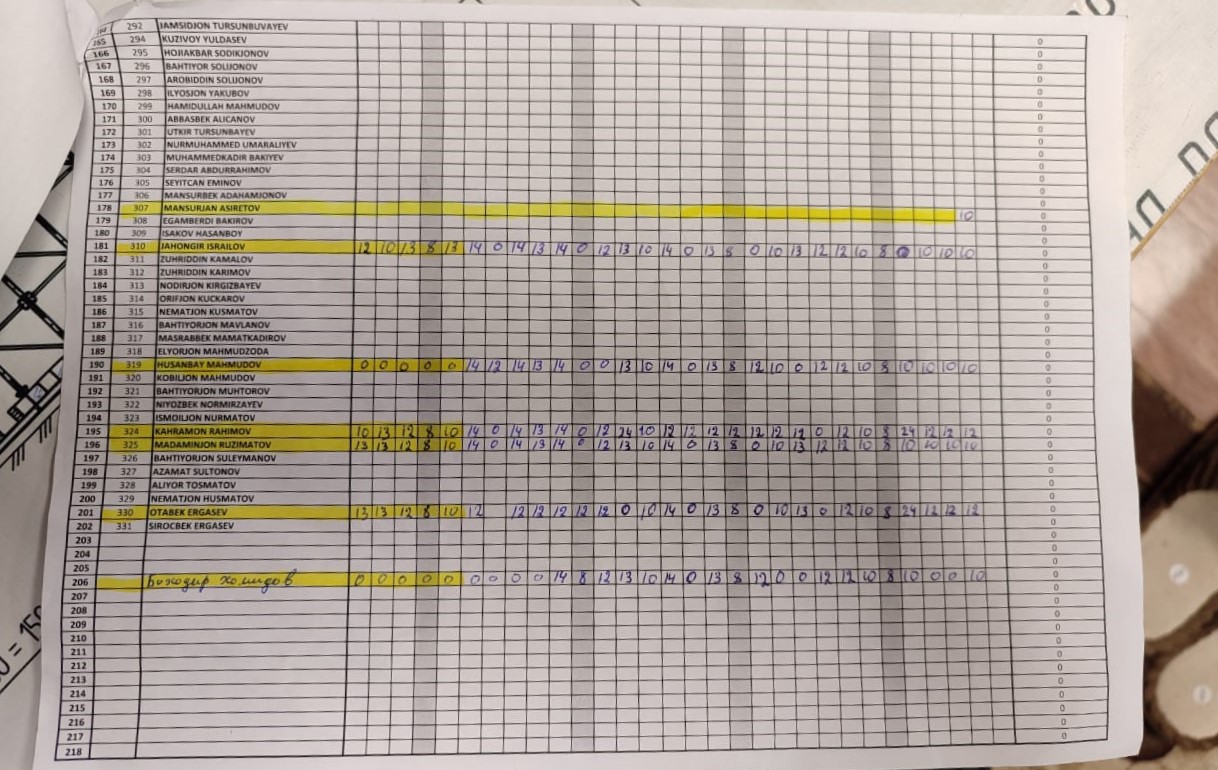 292 JAMSIDJON TURSUNBUVAYEV
165 294 KUZIVOY YULDASEV 0
166 295 HOJIAKBAR SODIKJONOV 0
167 296 BAHTIYOR SOLIJONOV 0
168 297 AROBIDDIN SOLIJONOV 0
169 298 ILYOSJON YAKUBOV 0
170 299 HAMIDULLAH MAHMUDOV 0
171 300 ABBASBEK ALICANOV 0
172 301 UTKIR TURSUNBAYEV 0
173 302 NURMUHAMMED UMARALIYEV 0
174 303 MUHAMMEDKADIR BAKIYEV 0
175 304 SERDAR ABDURRAHIMOV 0
176 305 SEYITCAN EMINOV 0
177 306 MANSURBEK ADAHAMJONOV 0
178 307 MANSURJAN ASIRETOV 10 0
179 308 EGAMBERDI BAKIROV 0
180 309 ISAKOV HASANBOY 0
181 310 JAHONGIR ISRAILOV 12 10 13 8 13 14 0 14 13 14 0 12 13 10 14 0 13 8 0 10 13 12 12 10 8 0 10 10 10 0
182 311 ZUHRIDDIN KAMALOV 0
183 312 ZUHRIDDIN KARIMOV 0
184 313 NODIRJON KIRGIZBAYEV 0
185 314 ORIFJON KUCKAROV 0
186 315 NEMATJON KUSMATOV 0
187 316 BAHTIYORJON MAVLANOV 0
188 317 MASRABBEK MAMATKADIROV 0
189 318 ELYORJON MAHMUDZODA 0
190 319 HUSANBAY MAHMUDOV 0 0 0 0 0 14 12 14 13 14 0 0 13 10 14 0 13 8 12 10 0 12 12 10 8 10 10 10 10 0
191 320 KOBILJON MAHMUDOV 0
192 321 BAHTIYORJON MUHTOROV 0
193 322 NIYOZBEK NORMIRZAYEV 0
194 323 ISMOILJON NURMATOV 0
195 324 KAHRAMON RAHIMOV 10 13 12 8 10 14 0 14 13 14 0 10 12 12 12 12 12 12 0 12 12 12 0
196 325 MADAMINJON RUZIMATOV 13 13 12 8 10 14 0 14 13 14 0 12 13 10 14 0 13 8 0 10 13 12 12 10 8 10 10 10 10 0
197 326 BAHTIYORJON SULEYMANOV 0
198 327 AZAMAT SULTONOV 0
199 328 ALIYOR TOSMATOV 0
200 329 NEMATJON HUSMATOV 0
201 330 OTABEK ERGASEV 13 13 12 8 10 12 12 12 12 12 12 0 10 14 0 13 8 0 10 13 0 12 10 8 24 12 12 12 0
202 331 SIROCBEK ERGASEV 0
203 0
204 0
205 0
206 Боходир Холидов 0 0 0 0 0 0 0 0 0 14 8 12 13 10 14 0 13 8 12 0 0 12 12 10 8 10 0 0 10 0
207 0
208 0
209 0
210 0
211 0
212 0
213 0
214 0
215 0
216 0
217 0
218 0